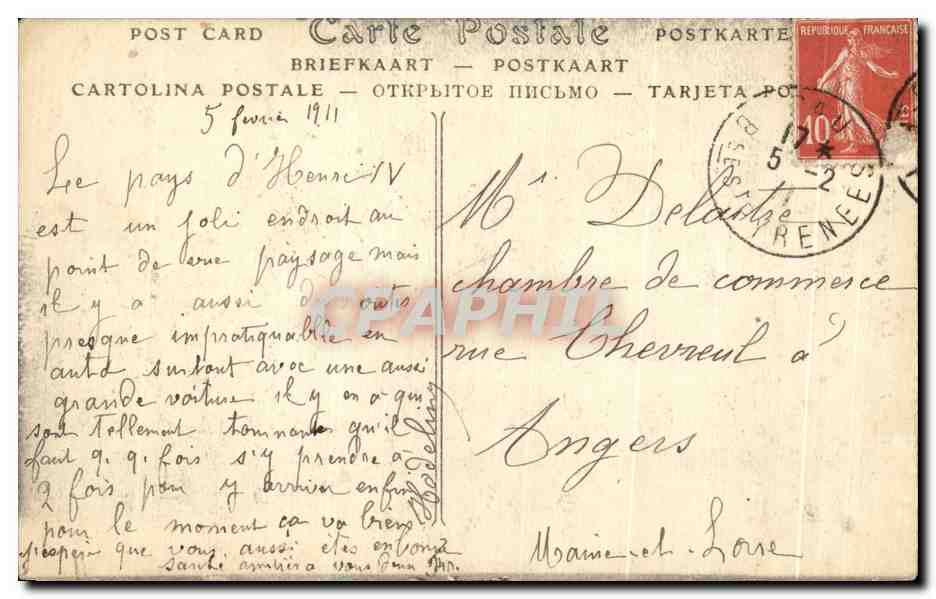 POST CARD Carte Postale POSTKARTE
BRIEFKAART — POSTKAART
CARTOLINA POSTALE — ОТКРЫТОЕ ПИСЬМО — TARJETA PO
REPUBLIQUE FRANÇAISE
10
PAU
17 *
5 - 2
11
BSES PYRENEES
5 fevrier 1911
Le pays d'Henri IV
est un joli endroit au
point de vue paysage mais
il y a aussi des
presque impratiquable en
auto surtout avec une aussi
grande voiture il y en a qui
sont tellement tournantes qu'il
faut q. q. fois s'y prendre à
q fois pour y arriver enfin
pour le moment ça va bien
j'espère que vous aussi êtes en bonne
santé amitiés a vous deux
Madeliny
Mr Delaitre
chambre de commerce
rue Chevreul à
Angers
Maine-et-Loire
CPAPHIL